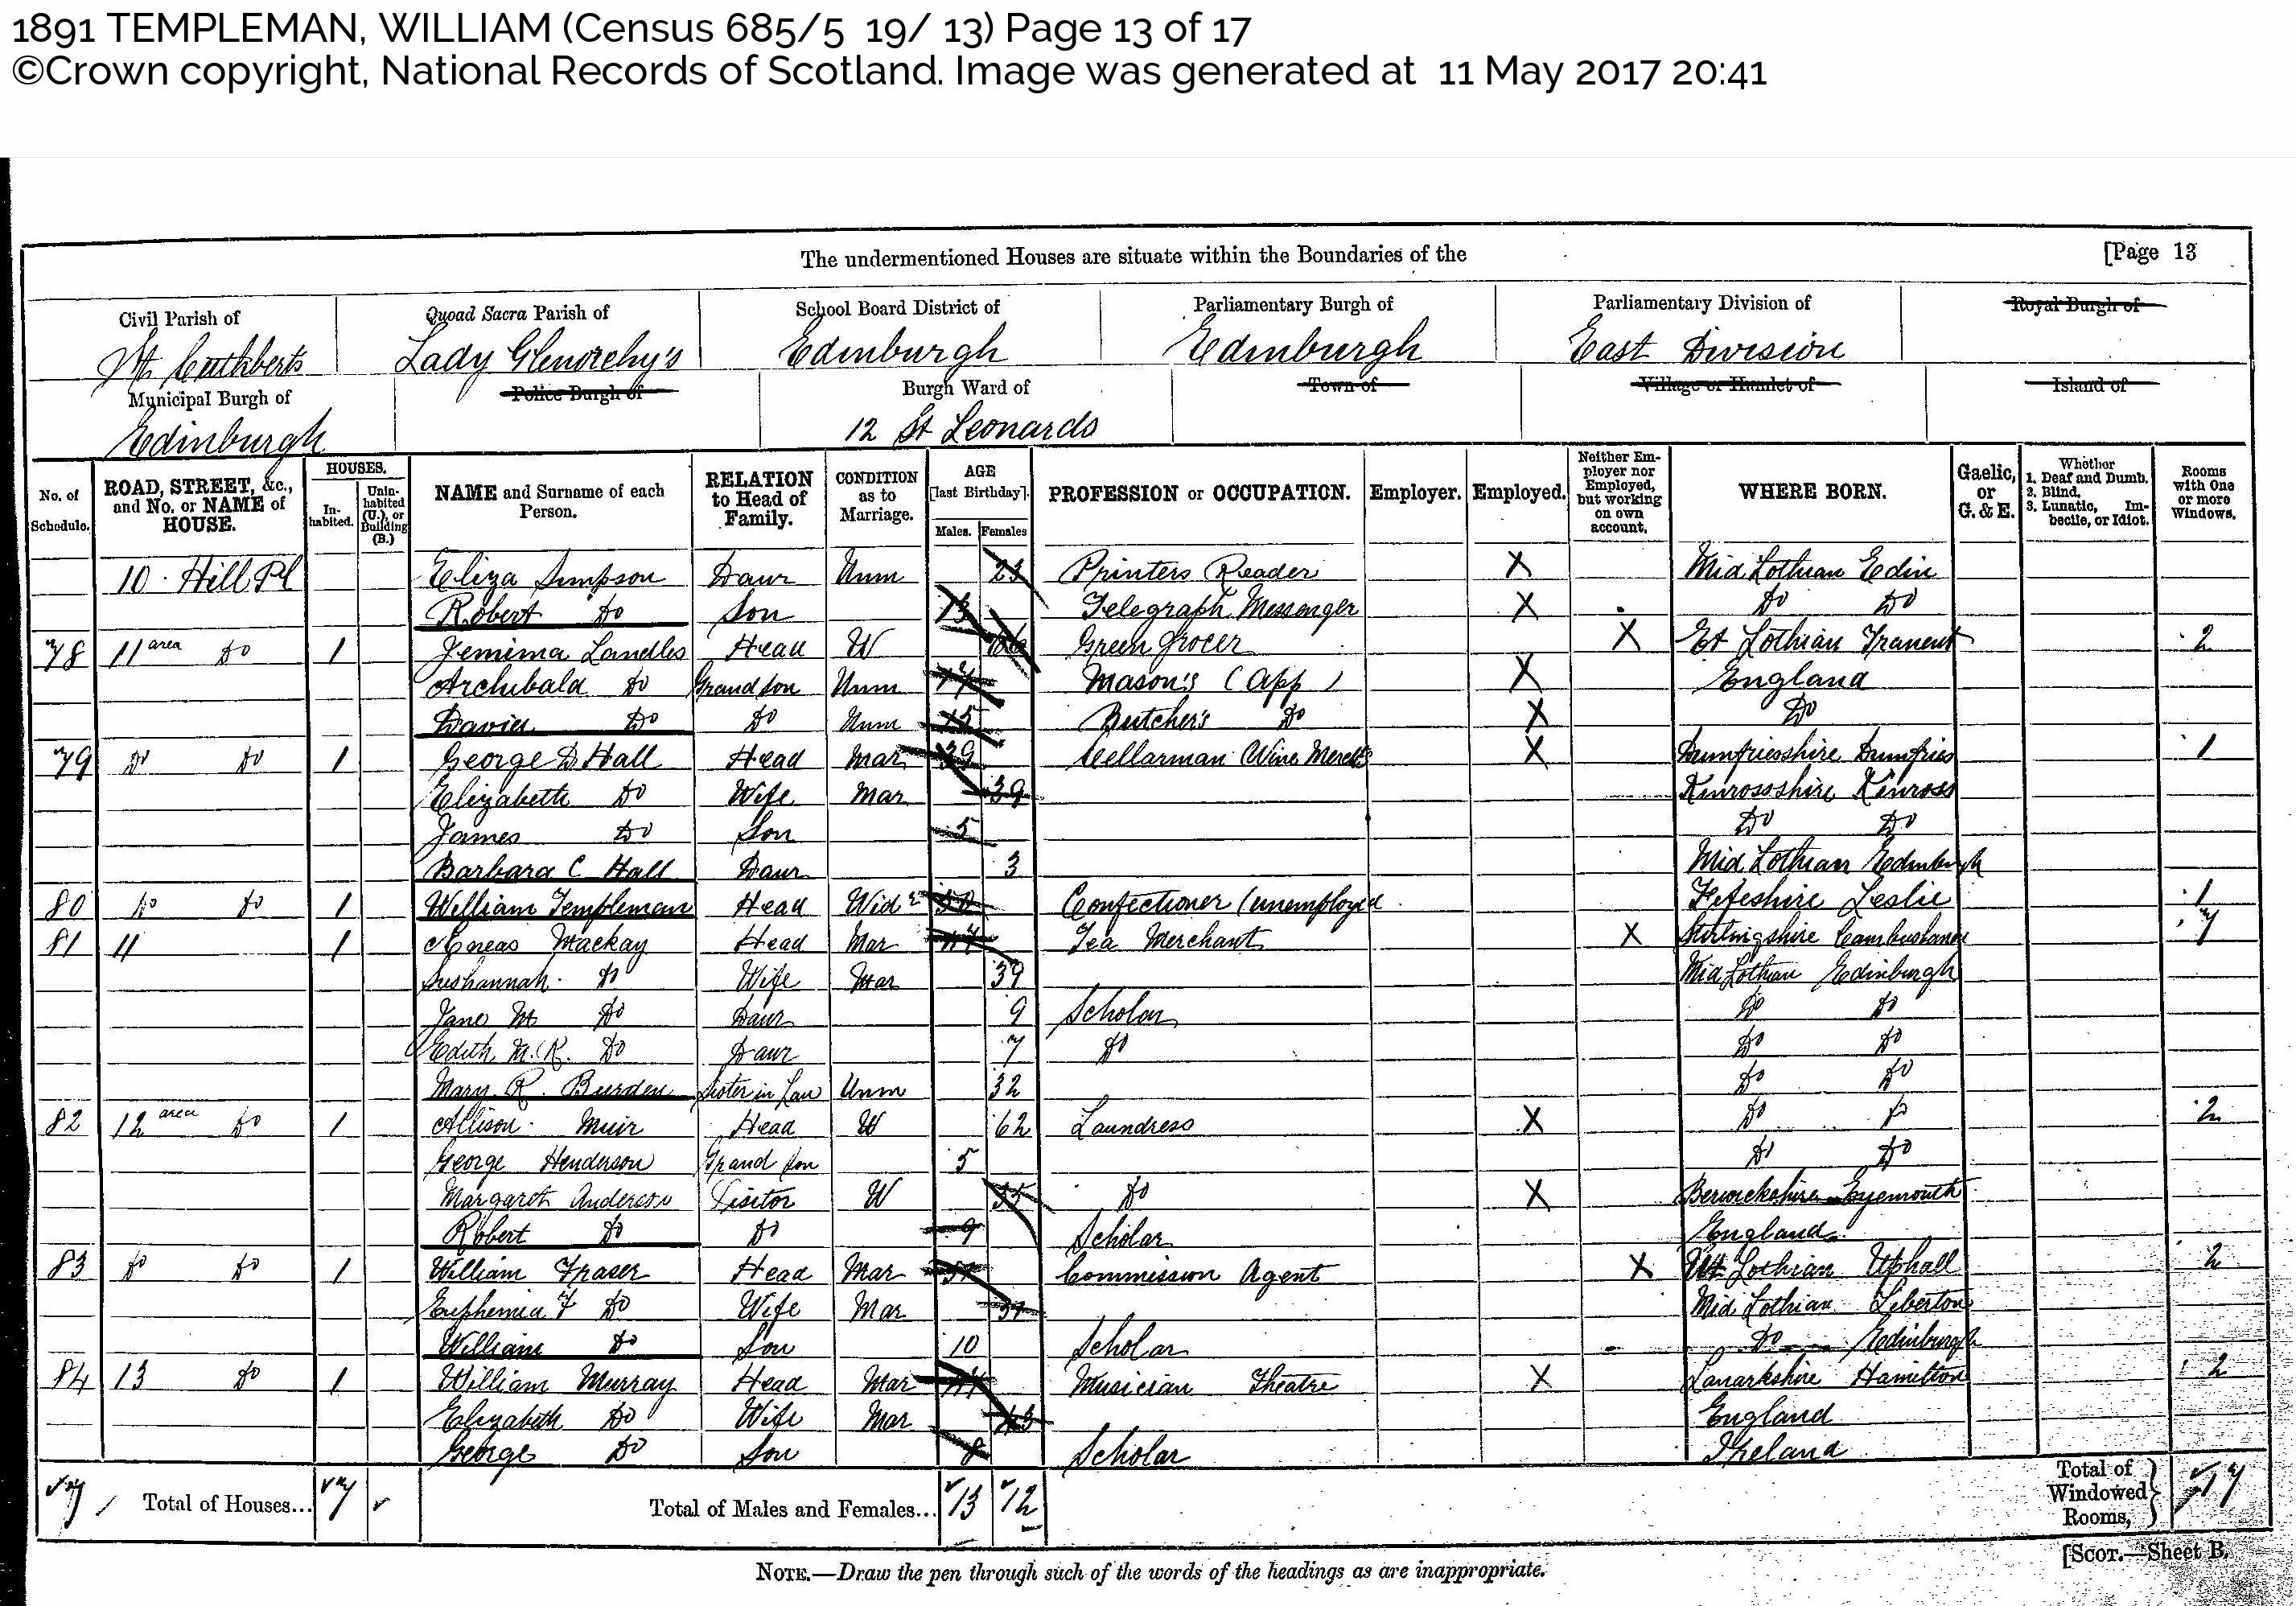 1891 TEMPLEMAN, WILLIAM (Census 685/5 19/ 13) Page 13 of 17
©Crown copyright, National Records of Scotland. Image was generated at 11 May 2017 20:41
The undermentioned Houses are situate within the Boundaries of the [Page 13
Civil Parish of Quoad Sacra Parish of School Board District of Parliamentary Burgh of Parliamentary Division of Royal Burgh of
St Cuthberts Lady Glenorchy's Edinburgh Edinburgh East Division
Municipal Burgh of Police Burgh of Burgh Ward of Town of Village or Hamlet of Island of
Edinburgh 12 St Leonards
No. of Schedule. ROAD, STREET, &c., and No. or NAME of HOUSE. HOUSES. Inhabited. Uninhabited (U.), or Building (B.) NAME and Surname of each Person. RELATION to Head of Family. CONDITION as to Marriage. AGE [last Birthday]. Males. Females PROFESSION or OCCUPATION. Employer. Employed. Neither Employer nor Employed, but working on own account. WHERE BORN. Gaelic, or G. & E. Whether 1. Deaf and Dumb. 2. Blind. 3. Lunatic, Imbecile, or Idiot. Rooms with One or more Windows.
10 Hill Pl Eliza Simpson Daur Unm 23 Printers Reader X Mid Lothian Edin
Robert Do Son 13 Telegraph Messenger X Do Do
78 11 area Do 1 Jemima Landles Head W Green Grocer X Et Lothian Tranent 2
Archibald Do Grandson Unm Mason's (App) X England
David Do Do Unm 15 Butcher's Do X Do
79 Do Do 1 George D Hall Head Mar 39 Cellarman (Wine Mercht) X Dumfriesshire Dumfries 1
Elizabeth Do Wife Mar 39 Kinrossshire Kinross
James Do Son 5 Do Do
Barbara C Hall Daur 3 Mid Lothian Edinburgh
80 Do Do 1 William Templeman Head Widr 50 Confectioner (unemployed Fifeshire Leslie 1
81 11 1 Æneas Mackay Head Mar Tea Merchant X Stirlingshire 7
Sushannah Do Wife Mar 39 Mid Lothian Edinburgh
Jane M Do Daur 9 Scholar Do Do
Edith M. R. Do Daur 7 Do Do Do
Mary R. Burden Sister in Law Unm 32 Do Do
82 12 area Do 1 Allison Muir Head W 62 Laundress X Do Do 2
George Henderson Grand Son 5 Do Do
Margaret Anderson Visitor W 35 Do X Berwickshire Eyemouth
Robert Do Do 9 Scholar England
83 Do Do 1 William Fraser Head Mar Commission Agent X Wt Lothian Uphall 2
Euphemia F Do Wife Mar 37 Mid Lothian Liberton
William Do Son 10 Scholar Do Edinburgh
84 13 Do 1 William Murray Head Mar Musician Theatre X Lanarkshire Hamilton 2
Elizabeth Do Wife Mar 43 England
George Do Son 8 Scholar Ireland
7 Total of Houses... 7 Total of Males and Females... 13 12 Total of Windowed Rooms, 17
NOTE.—Draw the pen through such of the words of the headings as are inappropriate.
[SCOT.—Sheet B.